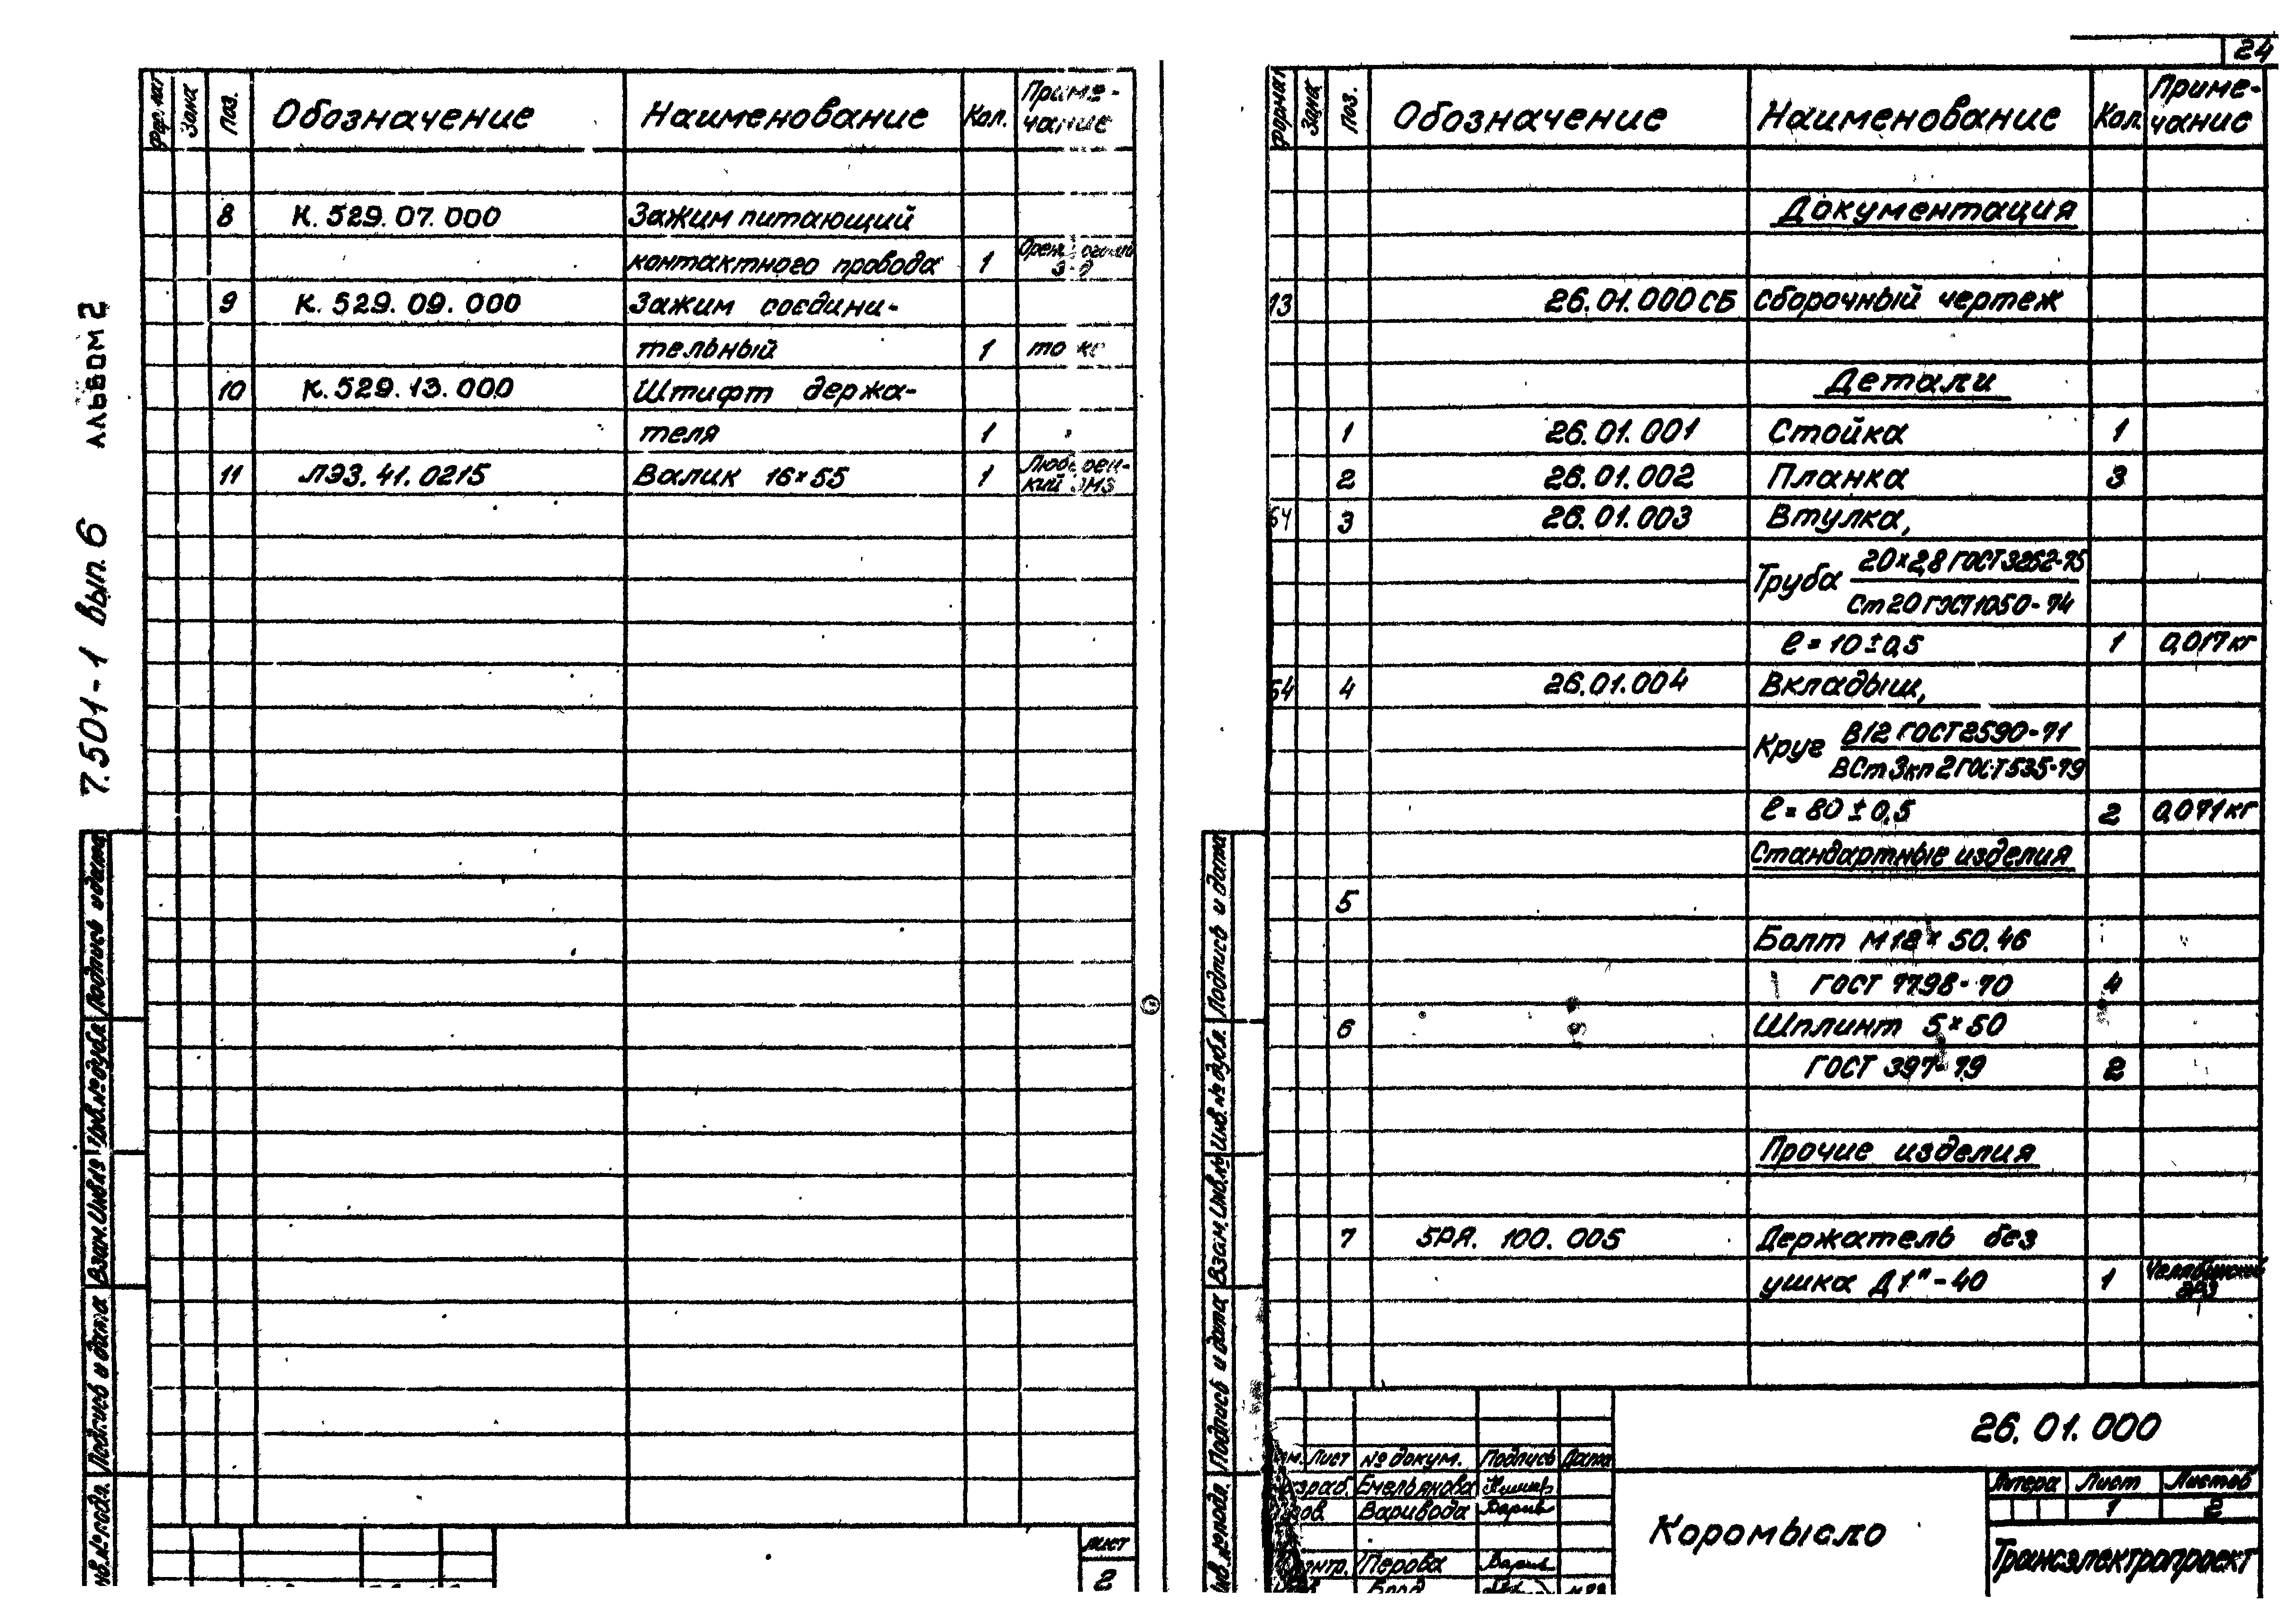 24
7.501-1 вып. 6 АЛЬБОМ 2
Зона Поз. Обозначение Наименование Кол. Примечание
8 К.529.07.000 Зажим питающий
контактного провода 1
9 К.529.09.000 Зажим соедини-
тельный 1 то же
10 К.529.13.000 Штифт держа-
теля 1 "
11 ЛЭЗ.41.0215 Валик 16×55 1
Подпись и дата
Инв.№ дубл.
Взам. Инв.№
Подпись и дата
Инв.№ подл.
Лист
2
Формат Зона Поз. Обозначение Наименование Кол. Приме-
чание
Документация
13 26.01.000 СБ Сборочный чертеж
Детали
1 26.01.001 Стойка 1
2 26.01.002 Планка 3
64 3 26.01.003 Втулка,
Труба 20×2,8 ГОСТ 3262-75
Ст 20 ГОСТ 1050-74
ℓ = 10 ± 0,5 1 0,017 кг
64 4 26.01.004 Вкладыш,
Круг В12 ГОСТ 2590-71
ВСт 3кп 2 ГОСТ 535-79
ℓ = 80 ± 0,5 2 0,071 кг
Стандартные изделия
5
Болт М12× 50.46
ГОСТ 7798-70 4
6 Шплинт 5×50
ГОСТ 397-79 2
Прочие изделия
7 5РЯ. 100. 005 Держатель без
ушка Д1"-40 1 Челябинский ЭРЗ
Подпись и дата
Инв.№ дубл.
Взам. Инв.№
Подпись и дата
Инв.№ подл.
26.01.000
Лист № докум. Подпись Дата
Емельянова
Варивода
Перова
Коромысло
Литера Лист Листов
1 2
Трансэлектропроект